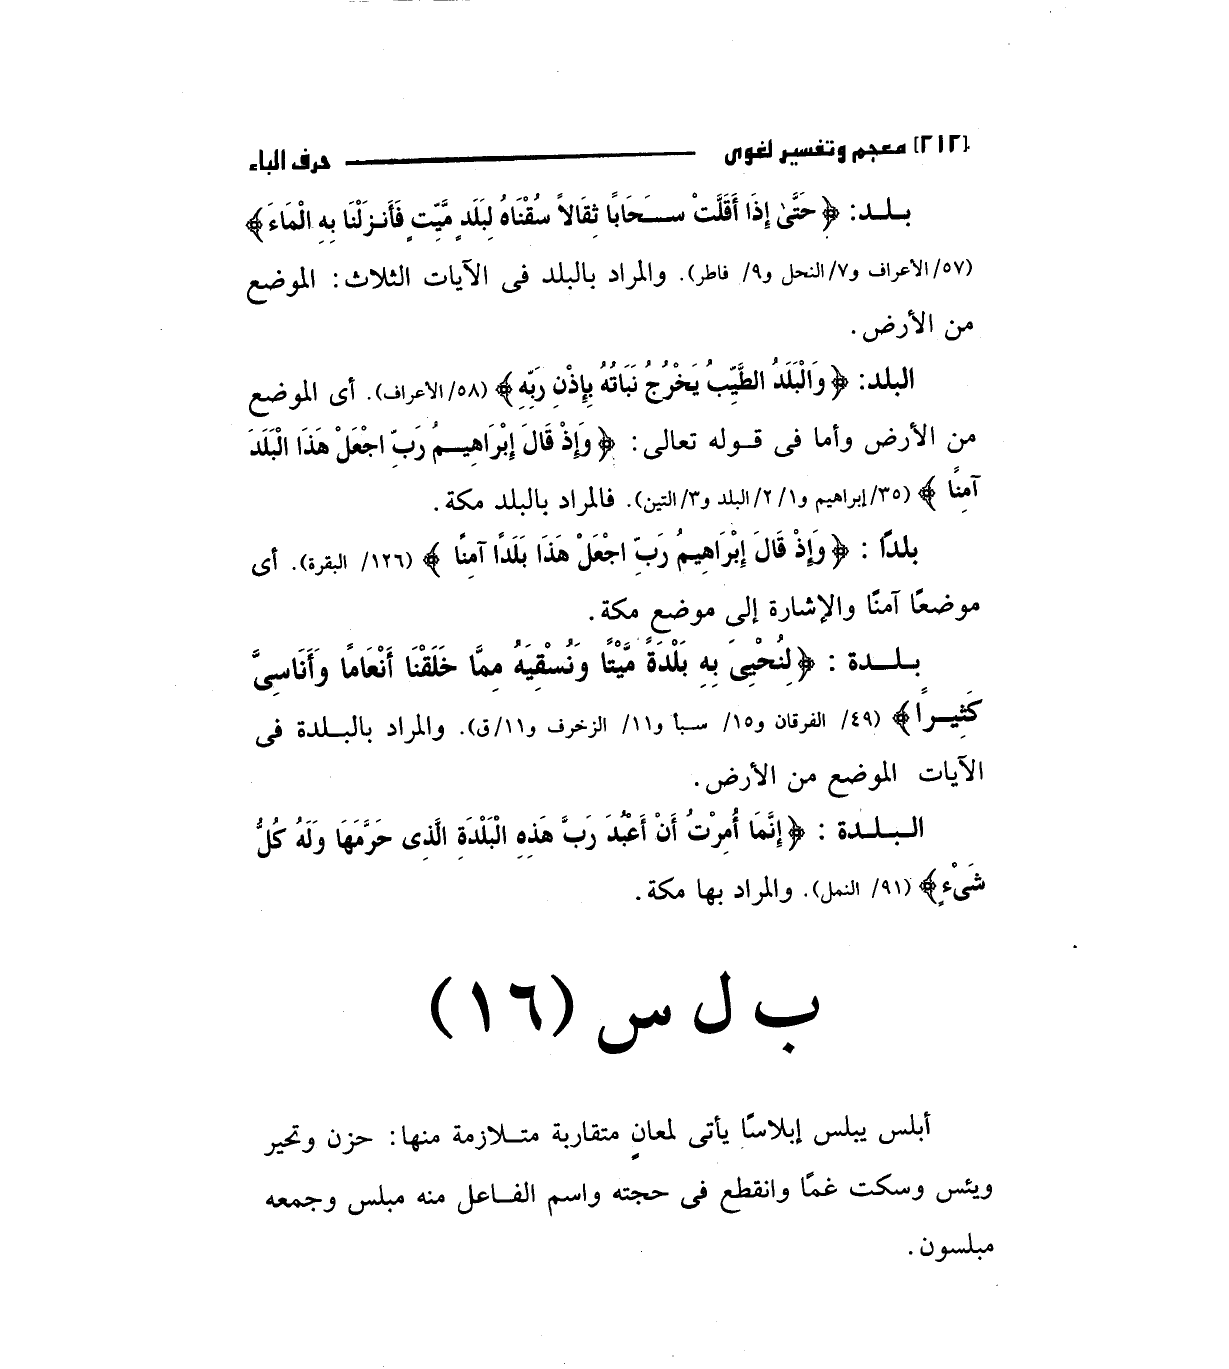 [٢١٢] معجم وتفسير لغوى ــــــ حرف الباء
بلد: ﴿حَتَّىٰ إِذَا أَقَلَّتْ سَحَابًا ثِقَالاً سُقْنَاهُ لِبَلَدٍ مَّيِّتٍ فَأَنزَلْنَا بِهِ الْمَاءَ﴾
(٥٧/ الأعراف و٧/ النحل و٩/ فاطر). والمراد بالبلد فى الآيات الثلاث: الموضع
من الأرض.
البلد: ﴿وَالْبَلَدُ الطَّيِّبُ يَخْرُجُ نَبَاتُهُ بِإِذْنِ رَبِّهِ﴾ (٥٨/ الأعراف). أى الموضع
من الأرض وأما فى قوله تعالى: ﴿وَإِذْ قَالَ إِبْرَاهِيمُ رَبِّ اجْعَلْ هَذَا الْبَلَدَ
آمِنًا﴾ (٣٥/ إبراهيم و١/ ٢/ البلد و٣/ التين). فالمراد بالبلد مكة.
بلدًا : ﴿وَإِذْ قَالَ إِبْرَاهِيمُ رَبِّ اجْعَلْ هَذَا بَلَدًا آمِنًا ﴾ (١٢٦/ البقرة). أى
موضعًا آمنًا والإشارة إلى موضع مكة.
بلدة : ﴿لِنُحْيِىَ بِهِ بَلْدَةً مَّيْتًا وَنُسْقِيَهُ مِمَّا خَلَقْنَا أَنْعَامًا وَأَنَاسِىَّ
كَثِيرًا﴾ (٤٩/ الفرقان و١٥/ سبأ و١١/ الزخرف و١١/ ق). والمراد بالبلدة فى
الآيات الموضع من الأرض.
البلدة : ﴿إِنَّمَا أُمِرْتُ أَنْ أَعْبُدَ رَبَّ هَذِهِ الْبَلْدَةِ الَّذِى حَرَّمَهَا وَلَهُ كُلُّ
شَىْءٍ﴾ (٩١/ النمل). والمراد بها مكة.
ب ل س (١٦)
أبلس يبلس إبلاسًا يأتى لمعانٍ متقاربة متلازمة منها: حزن وتحير
ويئس وسكت غمًا وانقطع فى حجته واسم الفاعل منه مبلس وجمعه
مبلسون.